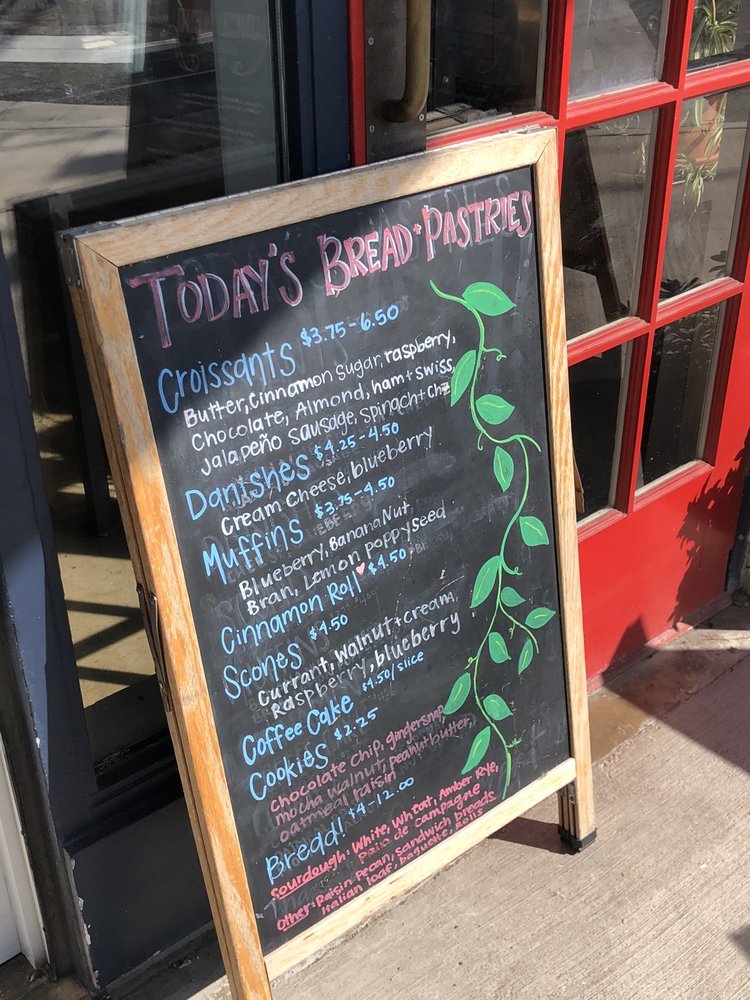 TODAY'S BREAD + PASTRIES
Croissants $3.75-6.50
Butter, Cinnamon Sugar, raspberry,
Chocolate, Almond, ham + swiss,
jalapeño sausage, spinach + chz
Danishes $4.25-4.50
Cream Cheese, blueberry
Muffins $3.75-4.50
Blueberry, Banana Nut,
Bran, Lemon poppyseed
Cinnamon Roll $4.50
Scones $4.50
Currant, Walnut + cream,
Raspberry, blueberry
Coffee Cake $4.50/slice
Cookies $2.25
chocolate chip, gingersnap,
mocha walnut, peanut butter,
oatmeal raisin
Bread! $4-12.00
Sourdough: White, Wheat, Amber Rye,
Pain de campagne
Other: Raisin Pecan, Sandwich breads,
Italian loaf, baguette, Rolls